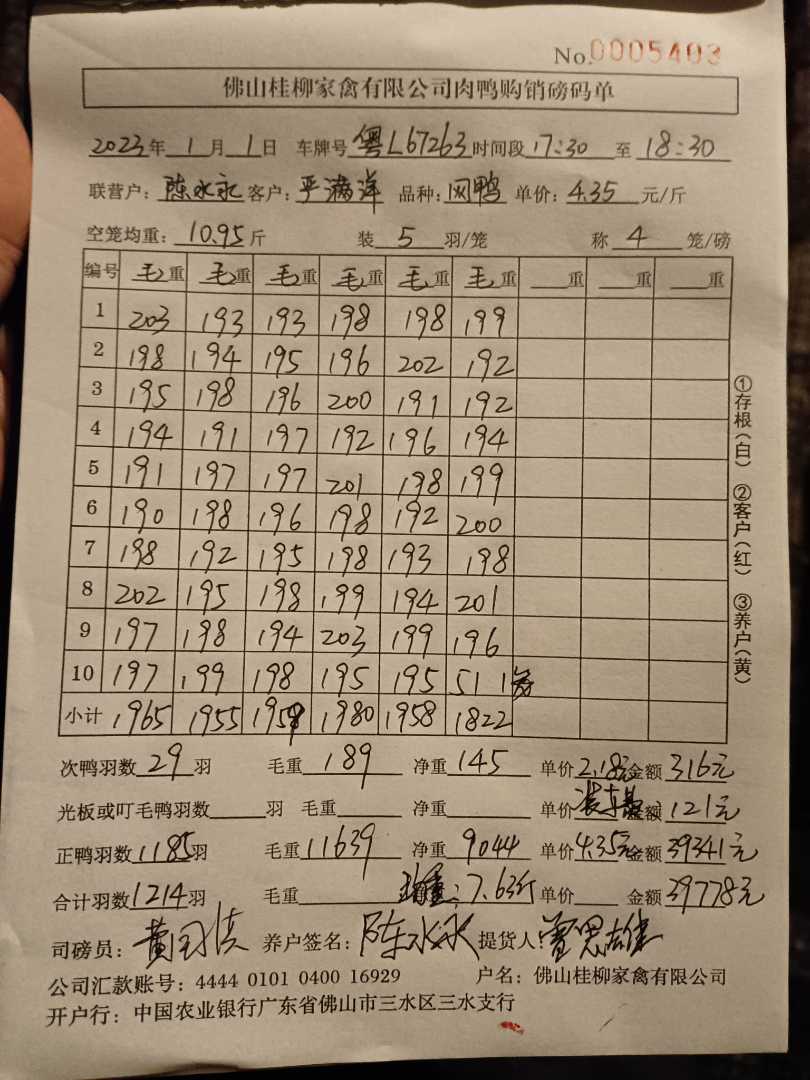 No.0005403
佛山桂柳家禽有限公司肉鸭购销磅码单
2023年 1月 1日 车牌号 粤L67263 时间段 17:30 至 18:30
联营户: 陈水永 客户: 严满洋 品种: 网鸭 单价: 4.35 元/斤
空笼均重: 10.95 斤 装 5 羽/笼 称 4 笼/磅
编号 毛重 毛重 毛重 毛重 毛重 毛重 重 重 重
1 203 193 193 198 198 199
2 198 194 195 196 202 192
3 195 198 196 200 191 192
4 194 191 197 192 196 194
5 191 197 197 201 198 199
6 190 198 196 198 192 200
7 198 192 195 198 193 198
8 202 195 198 199 194 201
9 197 198 194 203 199 196
10 197 199 198 195 195 51 1笼
小计 1965 1955 1959 1980 1958 1822
次鸭羽数 29 羽 毛重 189 净重 145 单价 2.18元 金额 316元
光板或叮毛鸭羽数 羽 毛重 净重 装车 额 121元
正鸭羽数 1185羽 毛重 11639 净重 9044 单价 4.35元 金额 39341元
合计羽数 1214羽 毛重 均重: 7.63斤 单价 金额 39778元
司磅员: 黄 养户签名: 陈水永 提货人: 曾思雄
公司汇款账号: 4444 0101 0400 16929 户名: 佛山桂柳家禽有限公司
开户行: 中国农业银行广东省佛山市三水区三水支行
①存根(白) ②客户(红) ③养户(黄)